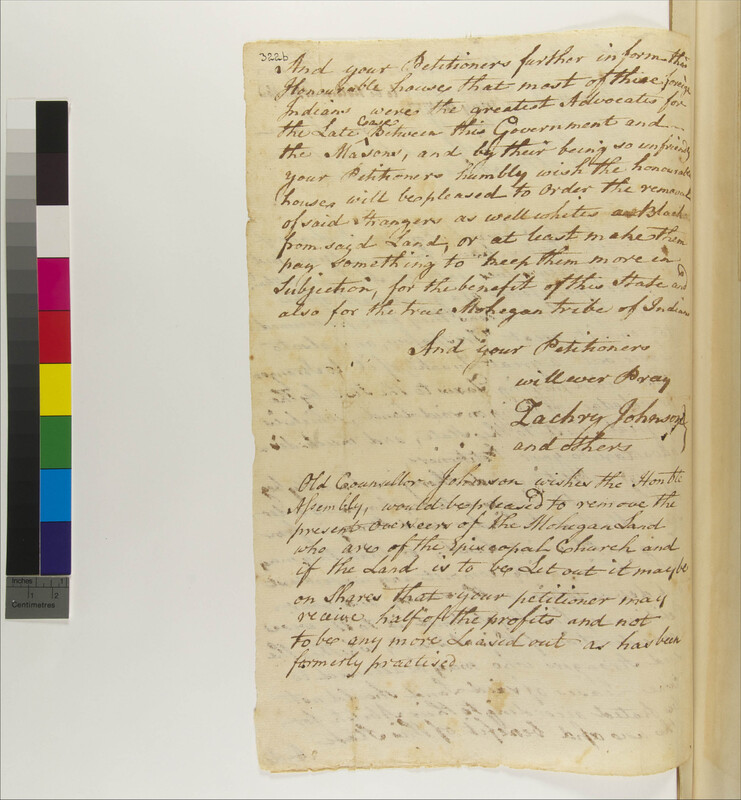 322b
And your Petitioners further inform this
Honourable houses that most of these foreign
Indians were the greatest Advocates for
the Late Case Between this Government and
the Masons, and by their being so unfriendly
your Petitioners humbly wish the honourable
houses will bepleased to order the removal
of said Strangers as well whites as Black
from said Land, or at least make them
pay something to keep them more in
Subjection, for the benefit of this State and
also for the true Mohegan tribe of Indians
And your Petitioners
will ever Pray
Zachry Johnson
and others
Old Councillor Johnson wishes the Honble
Assembly, would bepleased to remove the
present Overseers of the Mohegan Land
who are of the Episcopal Church and
if the Land is to be Let out it maybe
on Shares that your petitioner may
receive half of the profits and not
tobe any more Leased out as has been
formerly practised
Inches 1
1 2
Centimetres